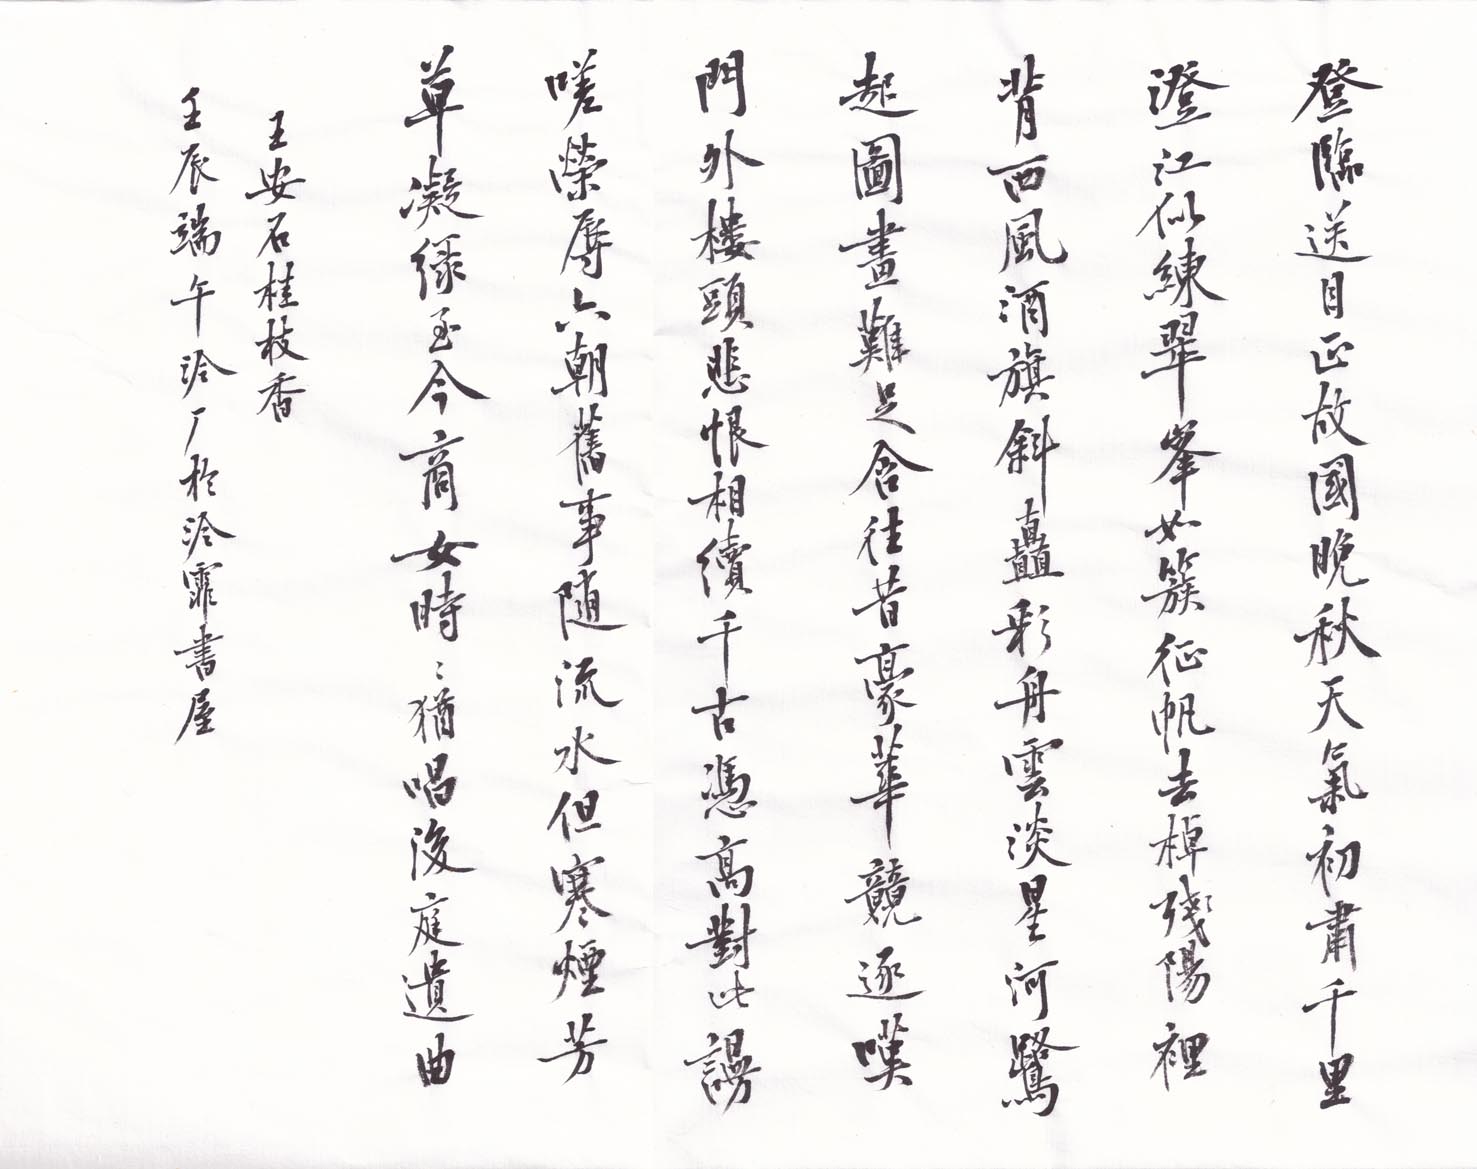 登臨送目正故國晚秋天氣初肅千里
澄江似練翠峯如簇征帆去棹殘陽裡
背西風酒旗斜矗彩舟雲淡星河鷺
起圖畫難足念往昔豪華競逐嘆
門外樓頭悲恨相續千古憑高對此謾
嗟榮辱六朝舊事隨流水但寒煙芳
草凝綠至今商女時〻猶唱後庭遺曲
王安石桂枝香
壬辰端午泠厂於泠霏書屋